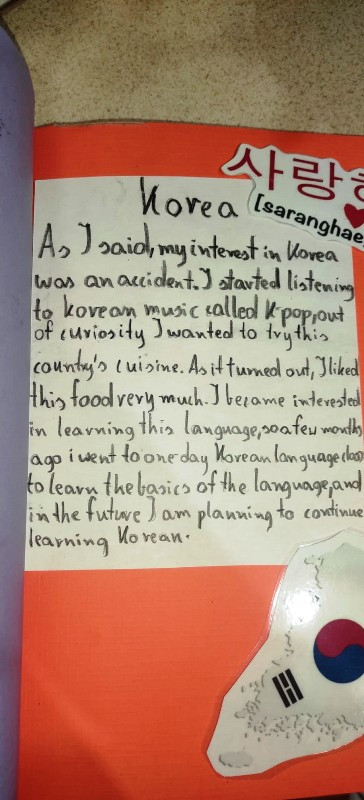 사랑해
[saranghae
Korea
As I said, my interest in Korea
was an accident. I started listening
to korean music called K-pop, out
of curiosity I wanted to try this
country's cuisine. As it turned out, I liked
this food very much. I became interested
in learning this language, so a few months
ago i went to one day Korean language class
to learn the basics of the language, and
in the future I am planning to continue
learning Korean.